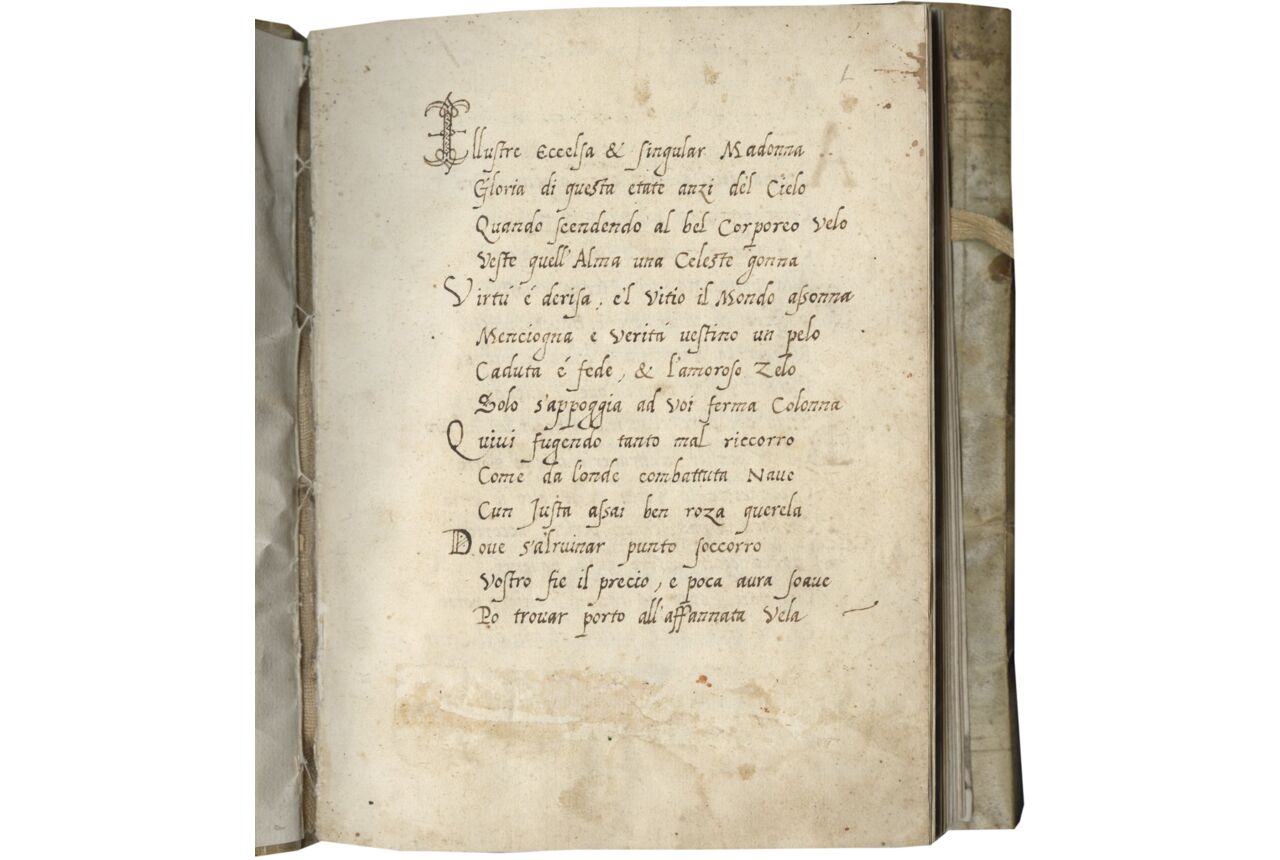 Illustre Eccelsa & singular Madonna
Gloria di questa etate anzi del Cielo
Quando scendendo al bel Corporeo velo
Veste quell'Alma una Celeste gonna
Virtú é derisa, e'l Vitio il Mondo assonna
Menciogna e veritá vestino un pelo
Caduta é fede, & l'amoroso Zelo
Solo s'appoggia ad Voi ferma Colonna
Quiui fugendo tanto mal riccorro
Come da l'onde combattuta Naue
Cun Justa assai ben roza querela
Doue s'alruinar punto soccorro
Vostro fie il precio, e poca aura soaue
Po trouar porto all'affannata Vela